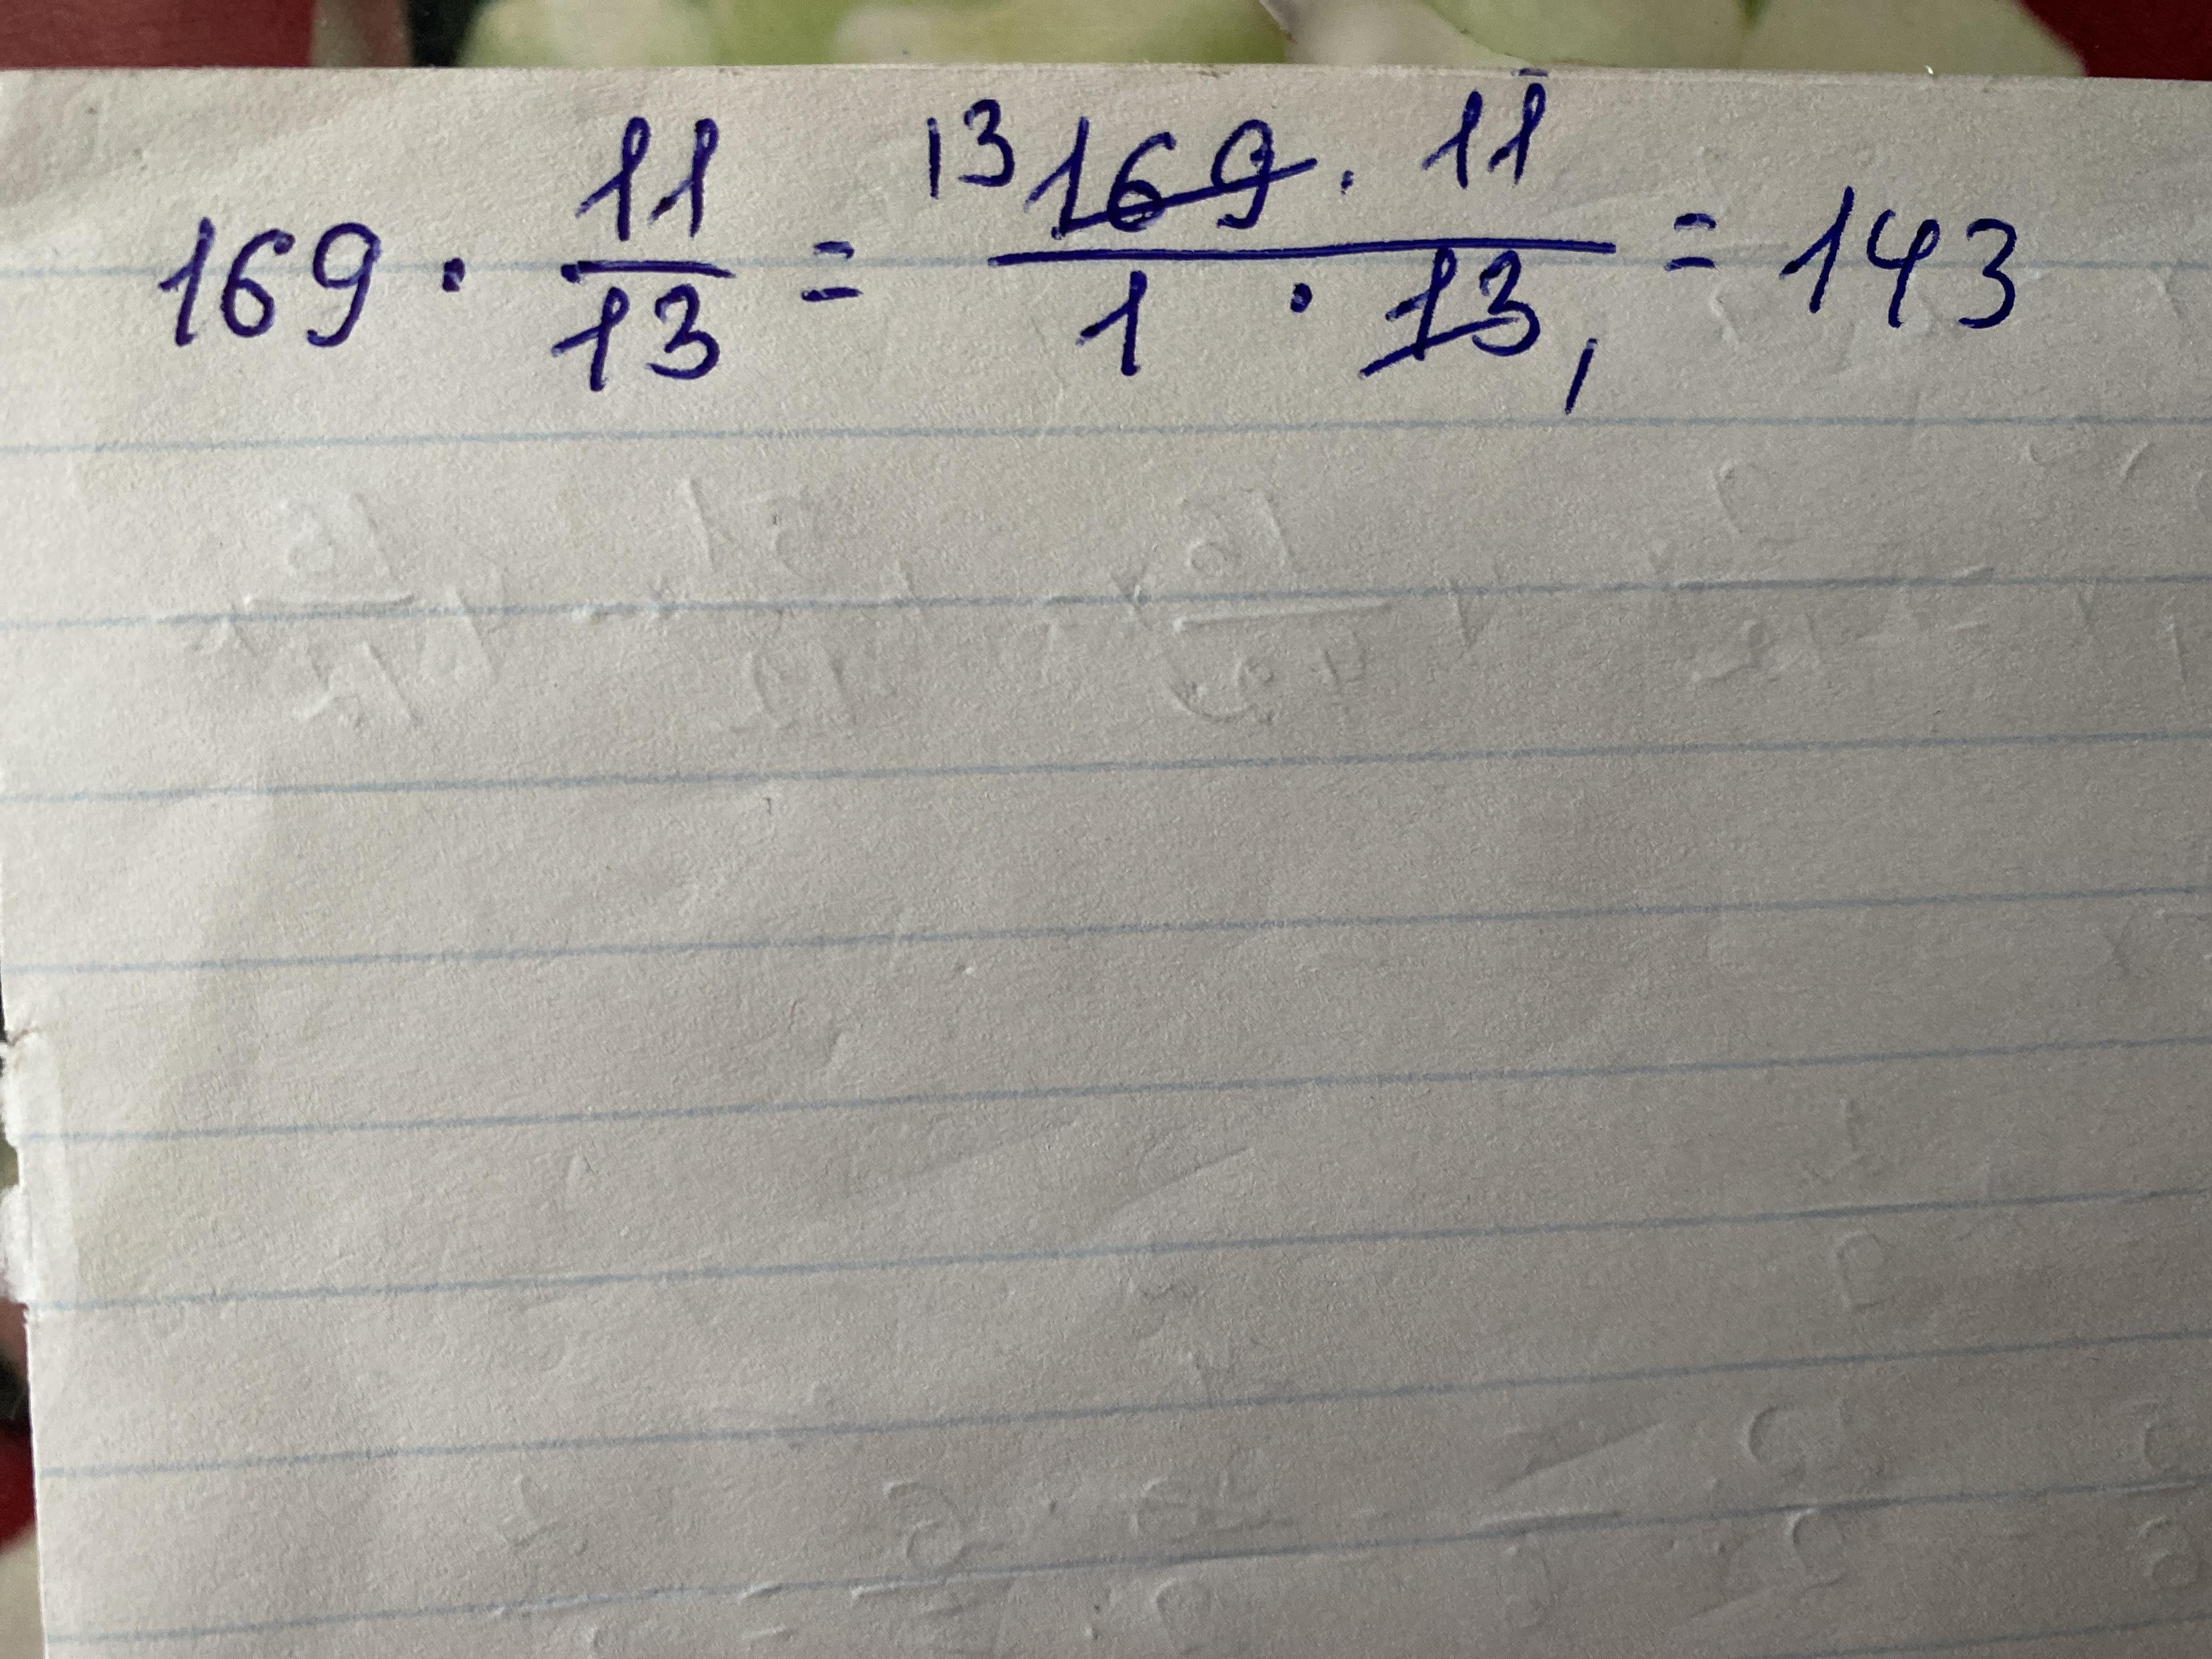 169 · 11/13 = 13 169 · 11 / 1 · 13 1 = 143